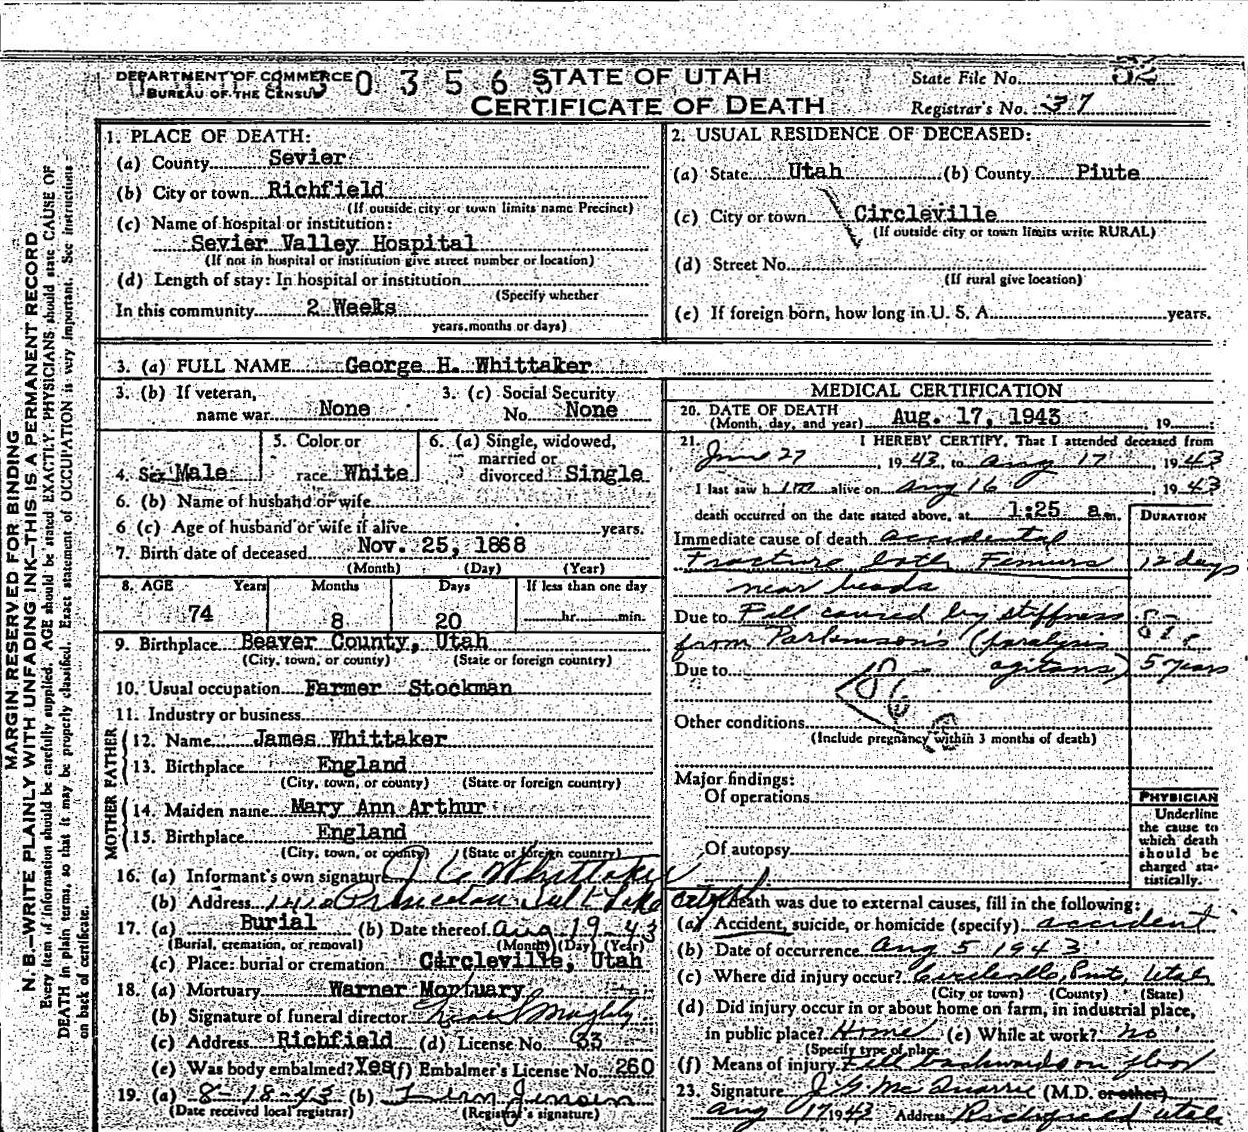 DEPARTMENT OF COMMERCE
BUREAU OF THE CENSUS
0 3 5 6 5
STATE OF UTAH
CERTIFICATE OF DEATH
State File No. 52
Registrar's No. 37
MARGIN RESERVED FOR BINDING
N. B.—WRITE PLAINLY WITH UNFADING INK—THIS IS A PERMANENT RECORD
Every item of information should be carefully supplied. AGE should be stated EXACTLY. PHYSICIANS should state CAUSE OF
DEATH in plain terms, so that it may be properly classified. Exact statement of OCCUPATION is very important. See Instructions
on back of certificate.
1. PLACE OF DEATH:
(a) County Sevier
(b) City or town Richfield
(If outside city or town limits name Precinct)
(c) Name of hospital or institution:
Sevier Valley Hospital
(If not in hospital or institution give street number or location)
(d) Length of stay: In hospital or institution
(Specify whether
In this community 2 Weeks
years, months or days)
2. USUAL RESIDENCE OF DECEASED:
(a) State Utah (b) County Piute
(c) City or town Circleville
(If outside city or town limits write RURAL)
(d) Street No.
(If rural give location)
(e) If foreign born, how long in U. S. A. years.
3. (a) FULL NAME George H. Whittaker
3. (b) If veteran, name war None
3. (c) Social Security No. None
4. Sex Male
5. Color or race White
6. (a) Single, widowed, married or divorced Single
6. (b) Name of husband or wife
6 (c) Age of husband or wife if alive years.
7. Birth date of deceased Nov. 25, 1868
(Month) (Day) (Year)
8. AGE Years Months Days If less than one day
74 8 20 hr. min.
9. Birthplace Beaver County, Utah
(City, town, or county) (State or foreign country)
10. Usual occupation Farmer Stockman
11. Industry or business
FATHER
12. Name James Whittaker
13. Birthplace England
(City, town, or county) (State or foreign country)
MOTHER
14. Maiden name Mary Ann Arthur
15. Birthplace England
(City, town, or county) (State or foreign country)
16. (a) Informant's own signature Whittaker
(b) Address Princeton Salt Lake City
17. (a) Burial (b) Date thereof Aug 19-43
(Burial, cremation, or removal) (Month) (Day) (Year)
(c) Place: burial or cremation Circleville, Utah
18. (a) Mortuary Warner Mortuary
(b) Signature of funeral director
(c) Address Richfield (d) License No. 33
(e) Was body embalmed? Yes (f) Embalmer's License No. 260
19. (a) 8-18-43 (b) Jensen
(Date received local registrar) (Registrar's signature)
MEDICAL CERTIFICATION
20. DATE OF DEATH Aug. 17, 1943 , 19
(Month, day, and year)
21. I HEREBY CERTIFY, That I attended deceased from
June 27, 1943, to Aug 17, 1943
I last saw h im alive on Aug 16, 1943
death occurred on the date stated above, at 1:25 a.m.
DURATION
Immediate cause of death accidental
Fracture both Femurs 12 days
near heads
Due to Fall caused by stiffness
from Parkinson's (paralysis
Due to agitans) 5 years
Other conditions
(Include pregnancy within 3 months of death)
Major findings:
Of operations
Of autopsy
PHYSICIAN
Underline
the cause to
which death
should be
charged sta-
tistically.
death was due to external causes, fill in the following:
(a) Accident, suicide, or homicide (specify) accident
(b) Date of occurrence Aug 5 1943
(c) Where did injury occur? Circleville, Piute, Utah
(City or town) (County) (State)
(d) Did injury occur in or about home on farm, in industrial place,
in public place? Home (e) While at work? no
(Specify type of place
(f) Means of injury Fell backwards on floor
23. Signature J. G. McQuarrie (M.D. or other)
Aug 17 1943 Address Richfield Utah